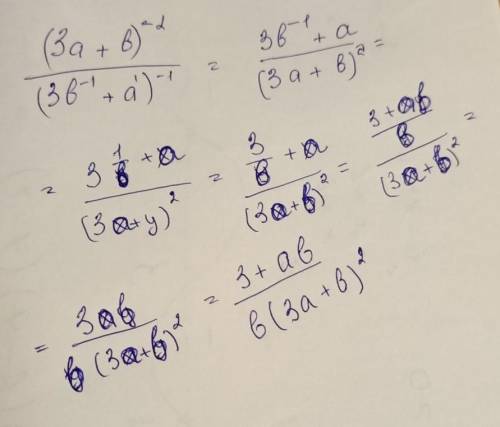 (3a + b)^{-2} / (3b^{-1} + a^{1})^{-1} = (3b^{-1} + a) / (3a + b)^{2} =
= (3 1/b + a) / (3a + y)^{2} = (3/b + a) / (3a + b)^{2} = ((3 + ab)/b) / (3a + b)^{2} =
= 3ab / b(3a + b)^{2} = (3 + ab) / b(3a + b)^{2}